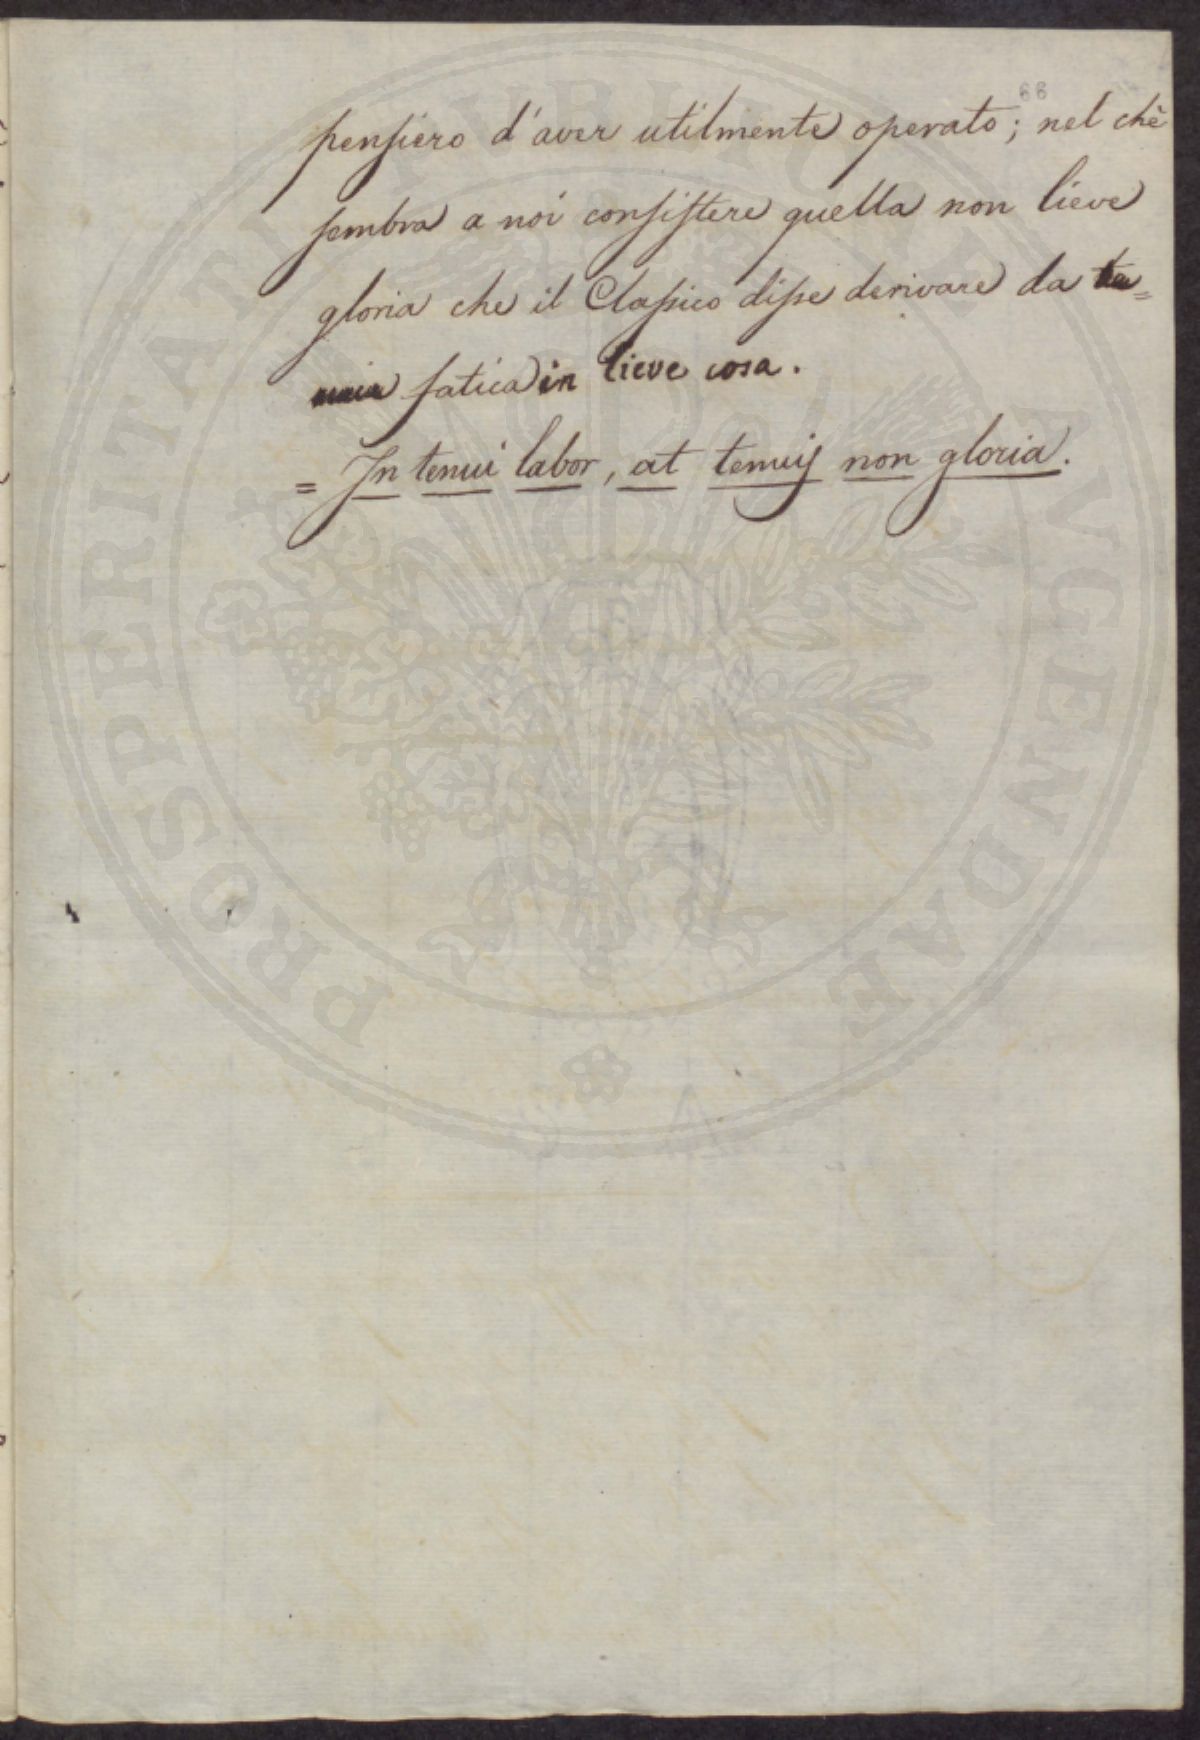 66
pensiero d'aver utilmente operato; nel chè
sembra a noi consistere quella non lieve
gloria che il Classico disse derivare da
fatica in lieve cosa.
= In tenui labor, at tenuis non gloria.
PROSPERITATI PUBLICAE AVGENDAE